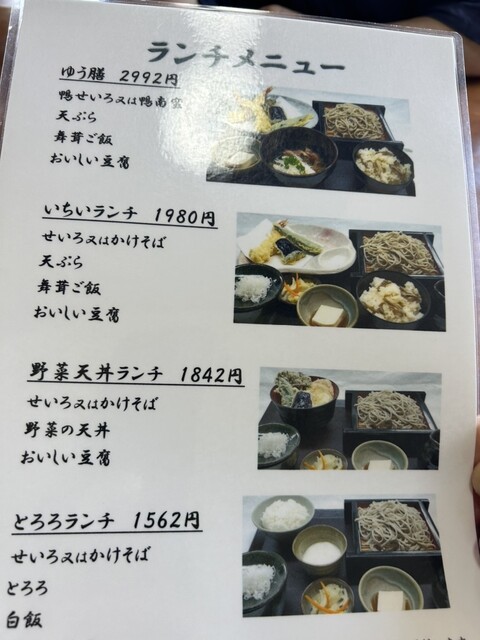 ランチメニュー
ゆう膳 2992円
鴨せいろ又は鴨南蛮
天ぷら
舞茸ご飯
おいしい豆腐
いちいランチ 1980円
せいろ又はかけそば
天ぷら
舞茸ご飯
おいしい豆腐
野菜天丼ランチ 1842円
せいろ又はかけそば
野菜の天丼
おいしい豆腐
とろろランチ 1562円
せいろ又はかけそば
とろろ
白飯